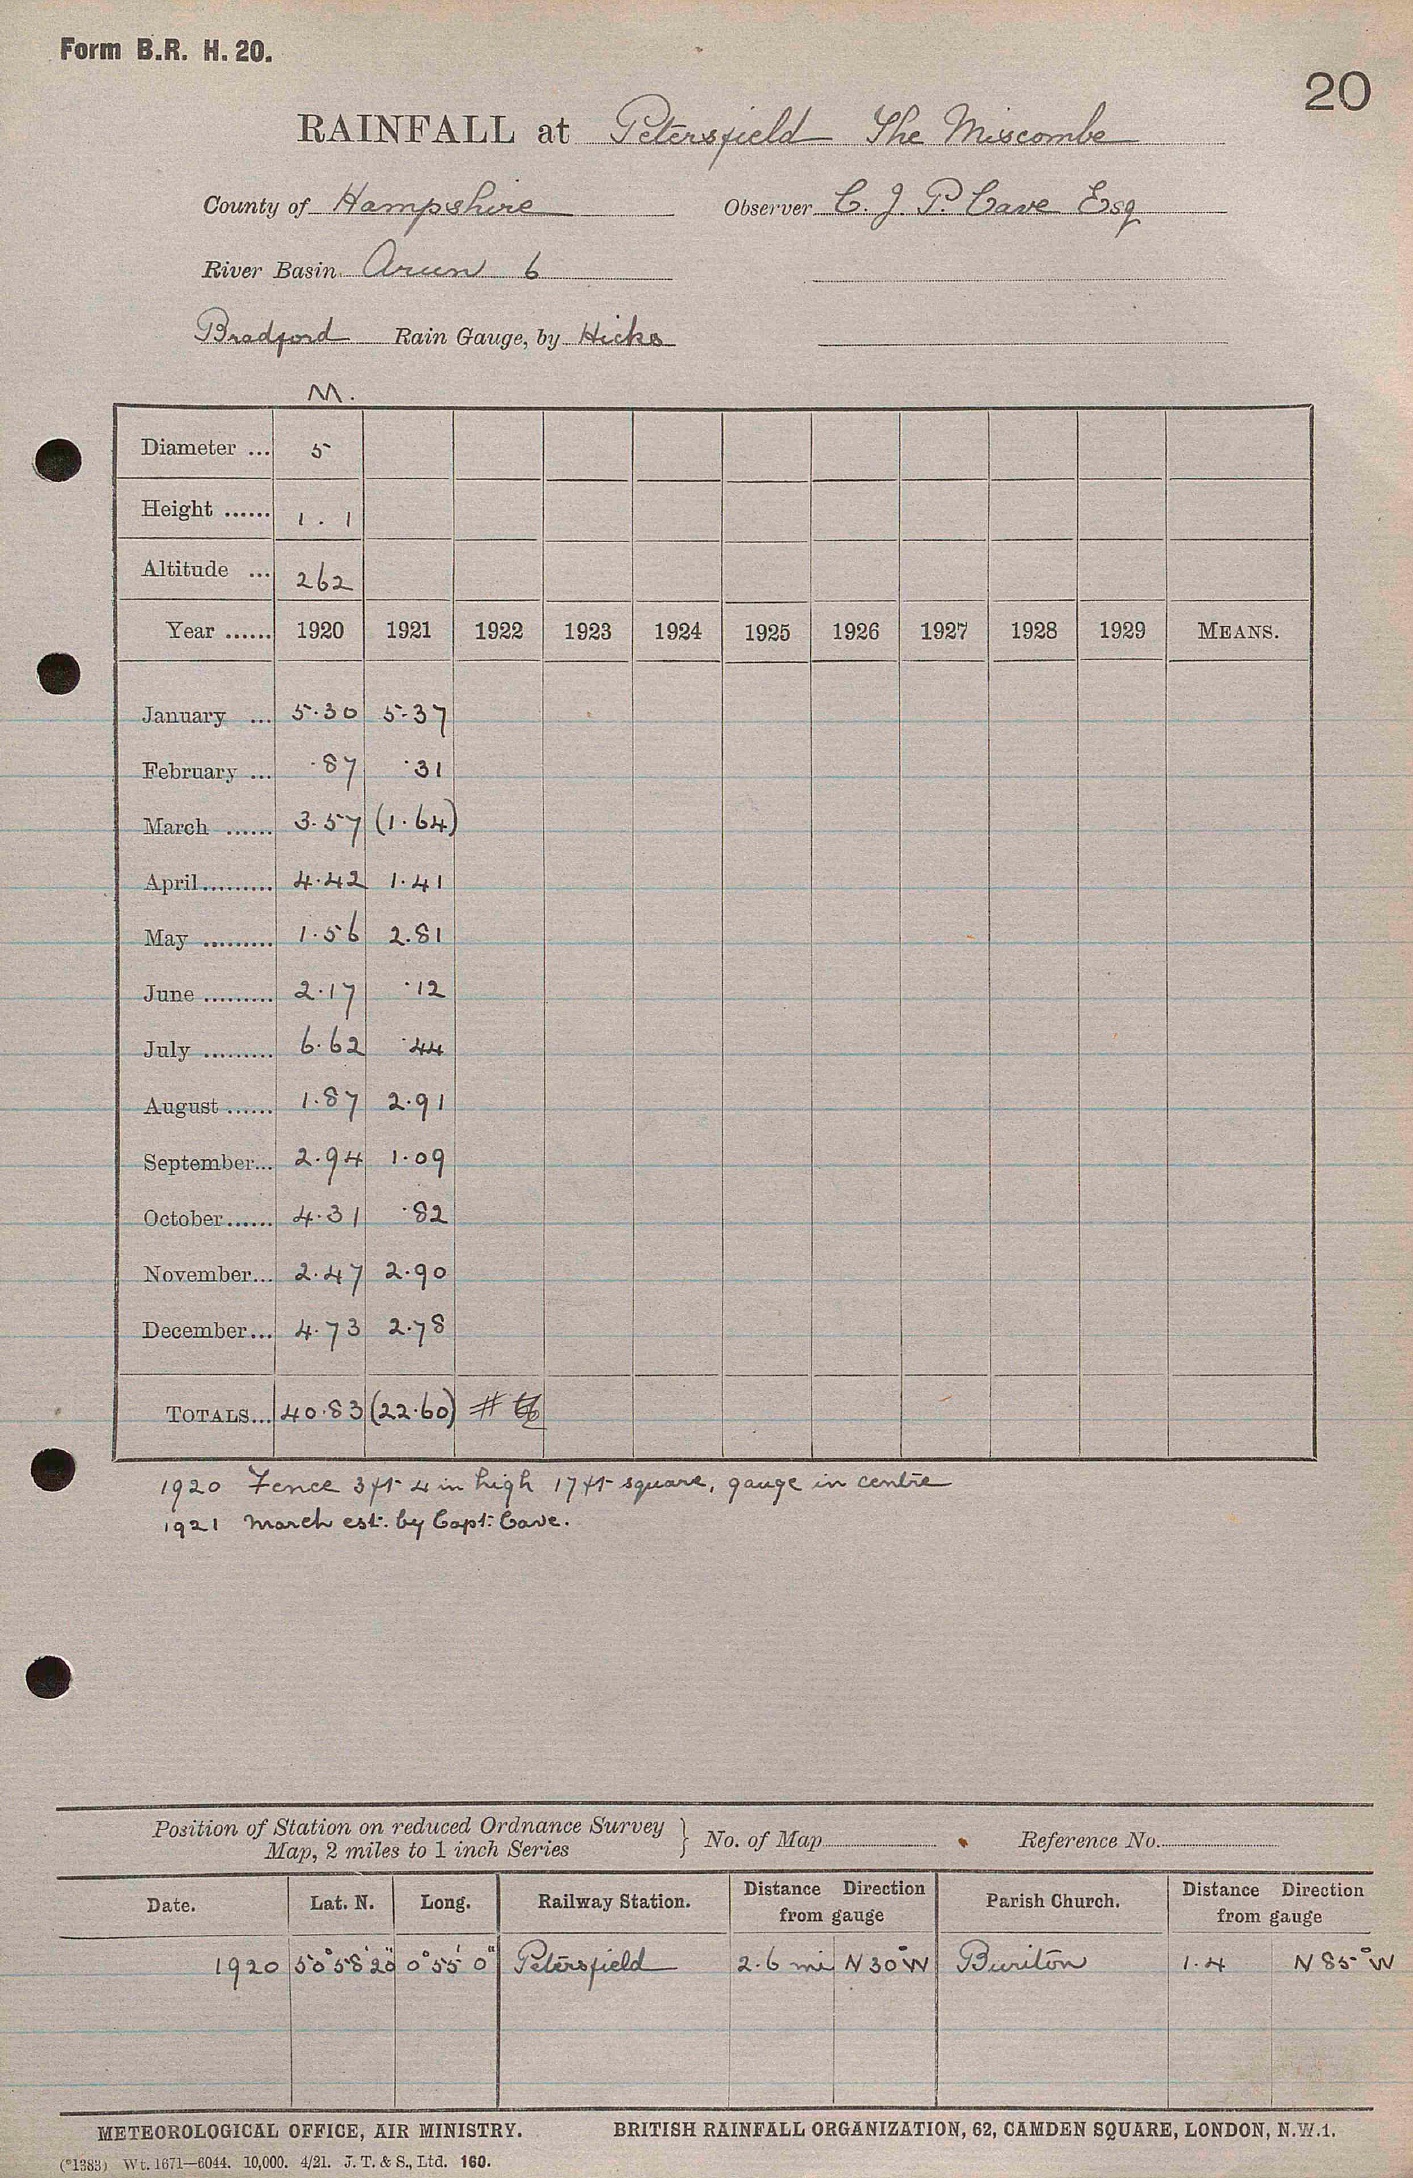 Form B.R. H. 20.
20
RAINFALL at Petersfield The Miscombe
County of Hampshire Observer C. J. P. Cave Esq
River Basin Arun 6
Bradford Rain Gauge, by Hicks
M.
Diameter ... 5
Height ...... 1 . 1
Altitude ... 262
Year ...... 1920 1921 1922 1923 1924 1925 1926 1927 1928 1929 MEANS.
January ... 5.30 5.37
February ... .87 .31
March ...... 3.57 (1.64)
April......... 4.42 1.41
May ......... 1.56 2.81
June ......... 2.17 .12
July ......... 6.62 .44
August ...... 1.87 2.91
September... 2.94 1.09
October...... 4.31 .82
November... 2.47 2.90
December... 4.73 2.78
TOTALS... 40.83 (22.60) #
1920 Fence 3 ft 4 in high 17 ft square, gauge in centre
1921 March est. by Capt. Cave.
Position of Station on reduced Ordnance Survey
Map, 2 miles to 1 inch Series } No. of Map Reference No.
Date. Lat. N. Long. Railway Station. Distance Direction from gauge Parish Church. Distance Direction from gauge
1920 50°58'20" 0°55'0" Petersfield 2.6 mi N 30° W Buriton 1.4 N 85° W
METEOROLOGICAL OFFICE, AIR MINISTRY. BRITISH RAINFALL ORGANIZATION, 62, CAMDEN SQUARE, LONDON, N.W.1.
(*1383) Wt. 1671—6044. 10,000. 4/21. J. T. & S., Ltd. 160.